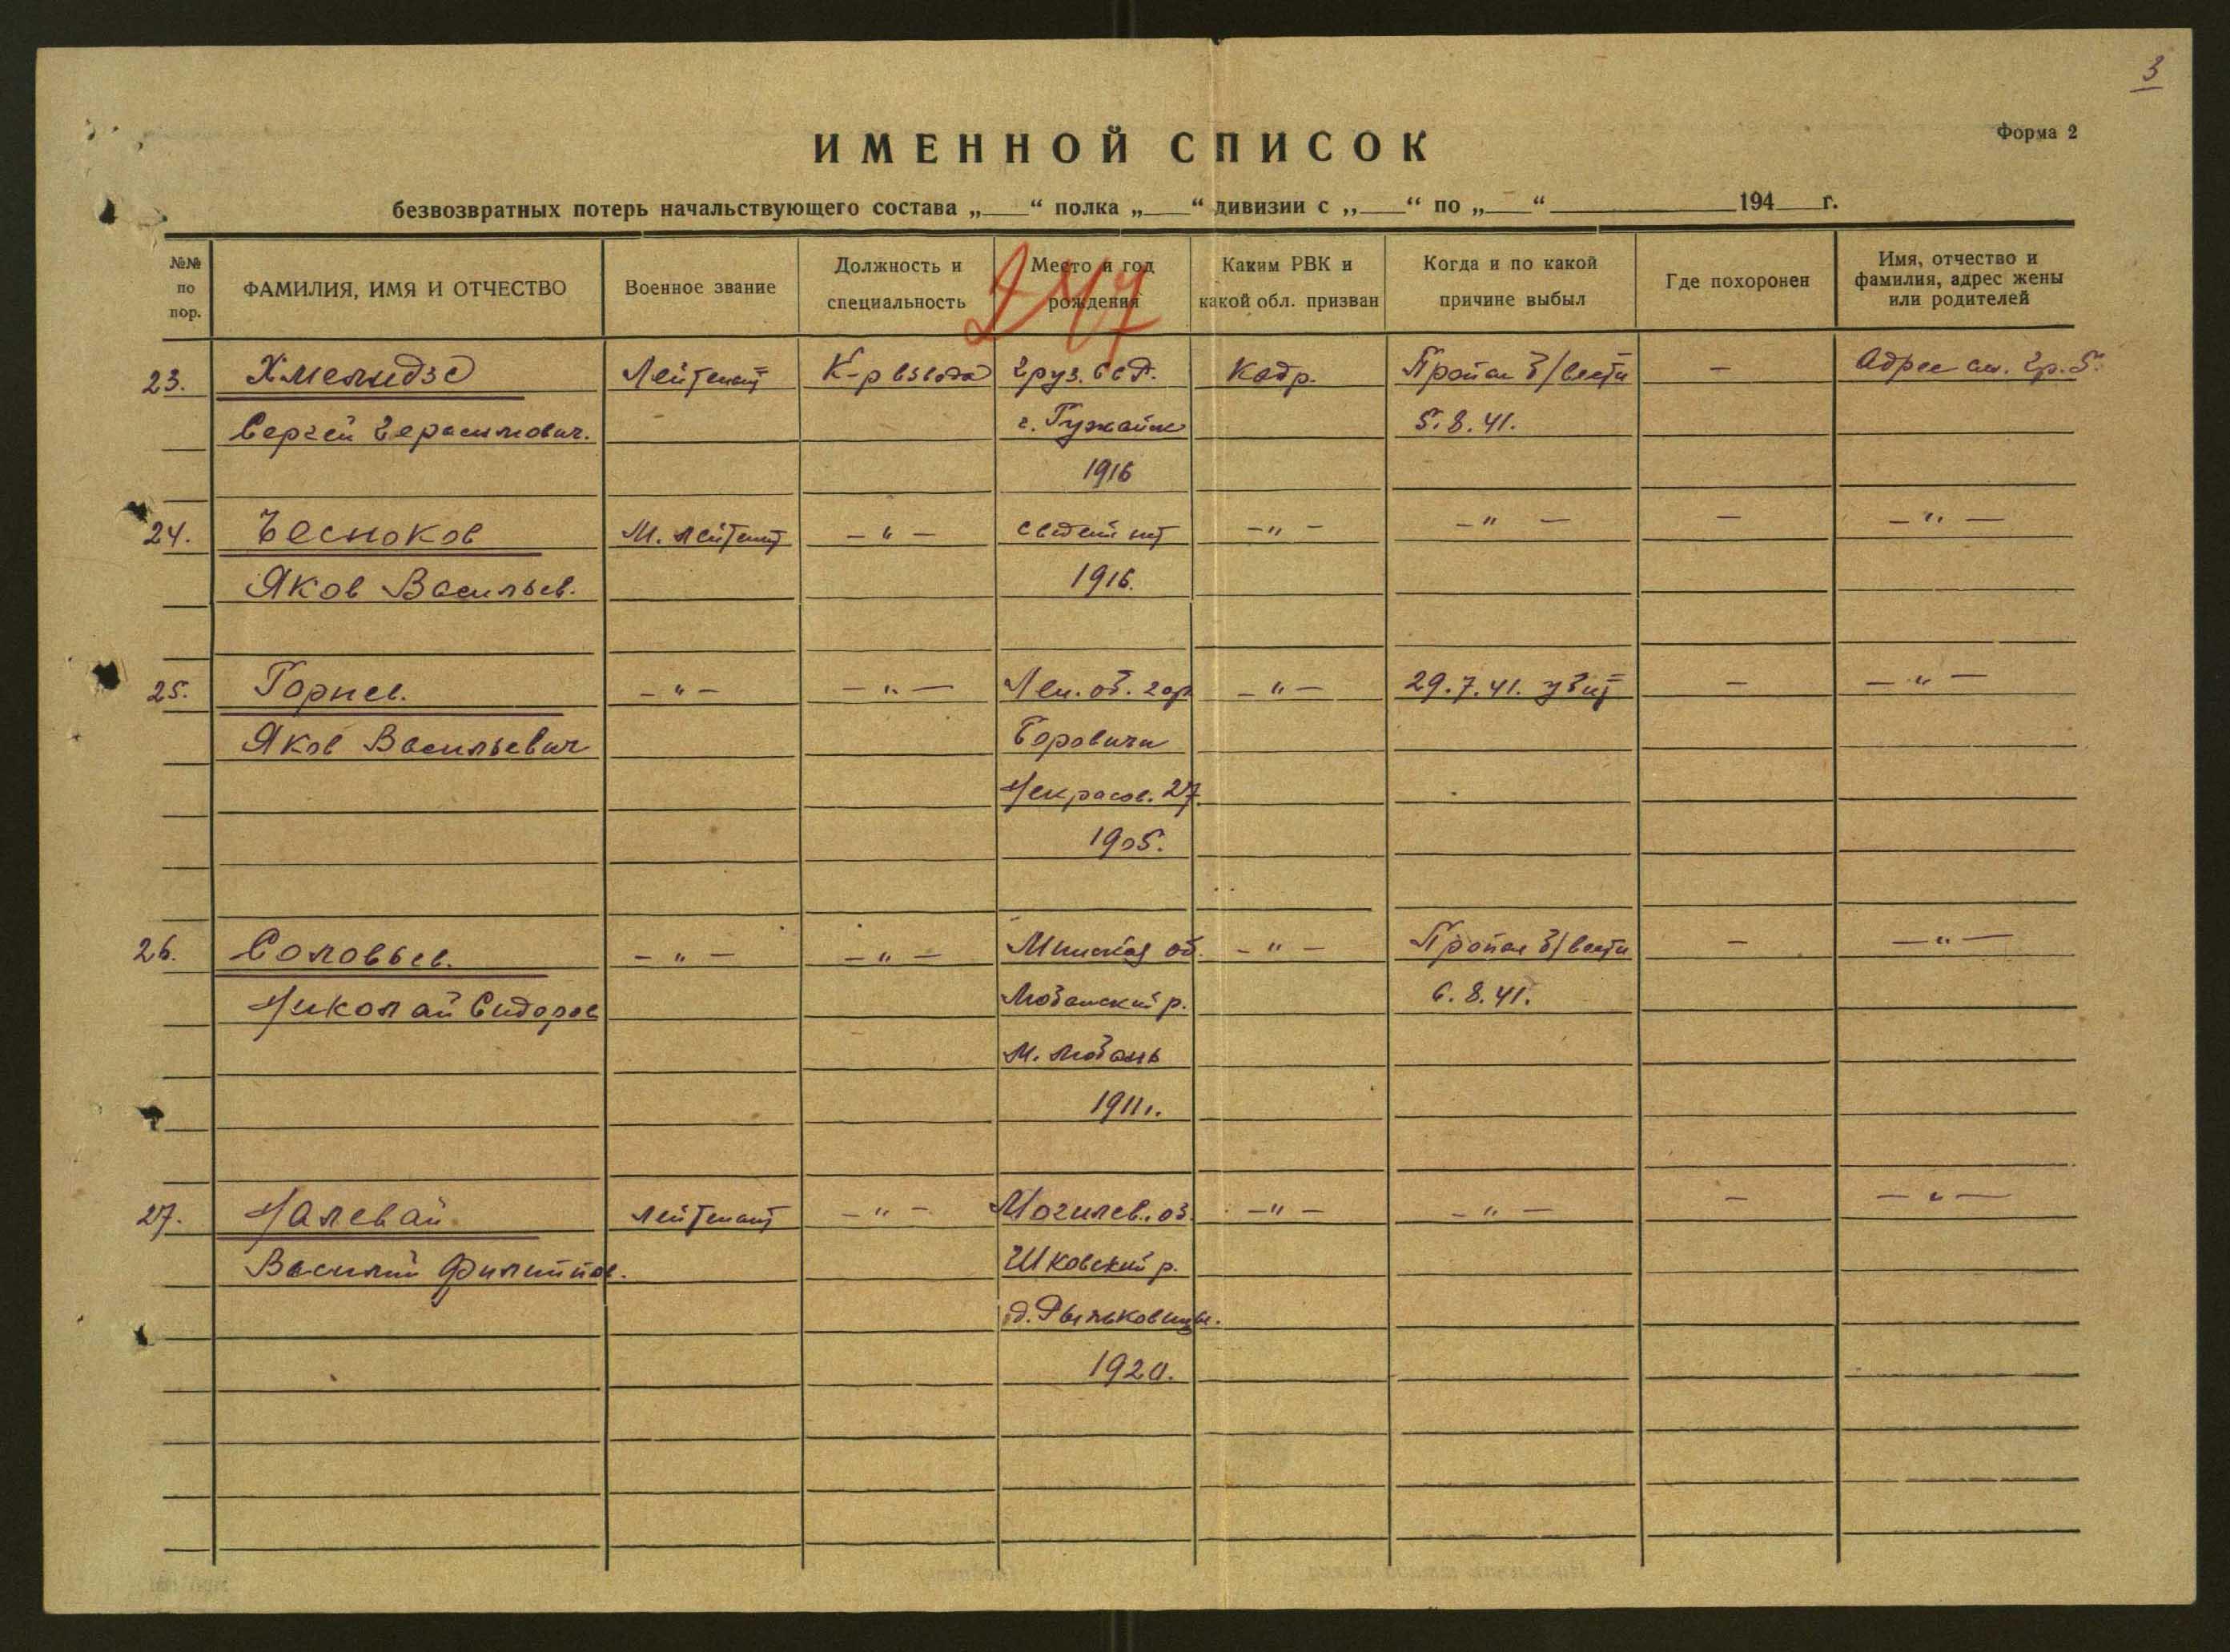 3
Форма 2
ИМЕННОЙ СПИСОК
безвозвратных потерь начальствующего состава „___“ полка „___“ дивизии с „___“ по „___“ ______ 194__ г.
№№ по пор.
ФАМИЛИЯ, ИМЯ И ОТЧЕСТВО
Военное звание
Должность и специальность
Место и год рождения
Каким РВК и какой обл. призван
Когда и по какой причине выбыл
Где похоронен
Имя, отчество и фамилия, адрес жены или родителей
23. Хмелидзе Лейтенант К-р взвода Груз. ССР. Кадр. Пропал б/вести — Адрес см. гр. 5.
Сергей Герасимович. 5.8.41.
1916
24. Чесноков М. лейтенант —"— сведен нет —"— —"— — —"—
Яков Васильев. 1916.
25. Горнев. —"— —"— Лен. об. гор. —"— 29.7.41. убит — —"—
Яков Васильевич Боровичи
Некрасов. 27
1905.
26. Соловьев. —"— —"— Минская об. —"— Пропал б/вести — —"—
Николай Сидоров Любанский р. 6.8.41.
м. Любань
1911г.
27. Налевай лейтенант —"— Могилев. об. —"— —"— — —"—
Василий Филиппов. Шковский р.
1920.